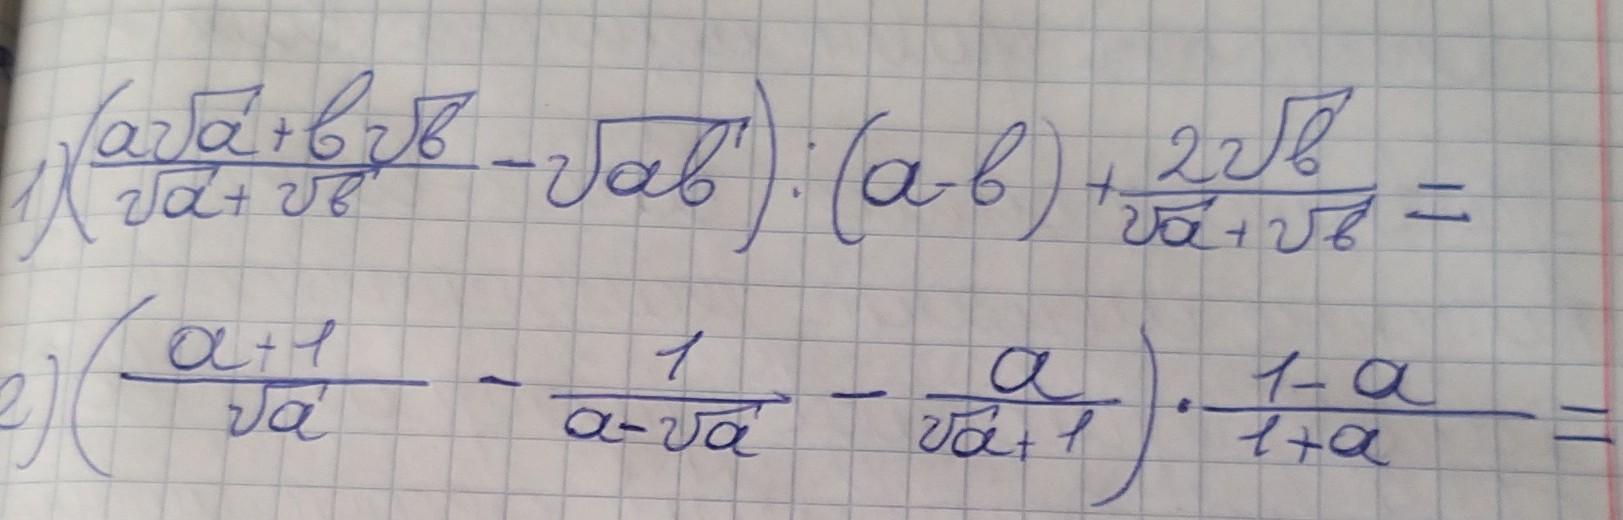 1) ((a√a + b√b)/(√a + √b) - √ab) : (a - b) + 2√b/(√a + √b) =
2) ((a+1)/√a - 1/(a-√a) - a/(√a+1)) · (1-a)/(1+a) =